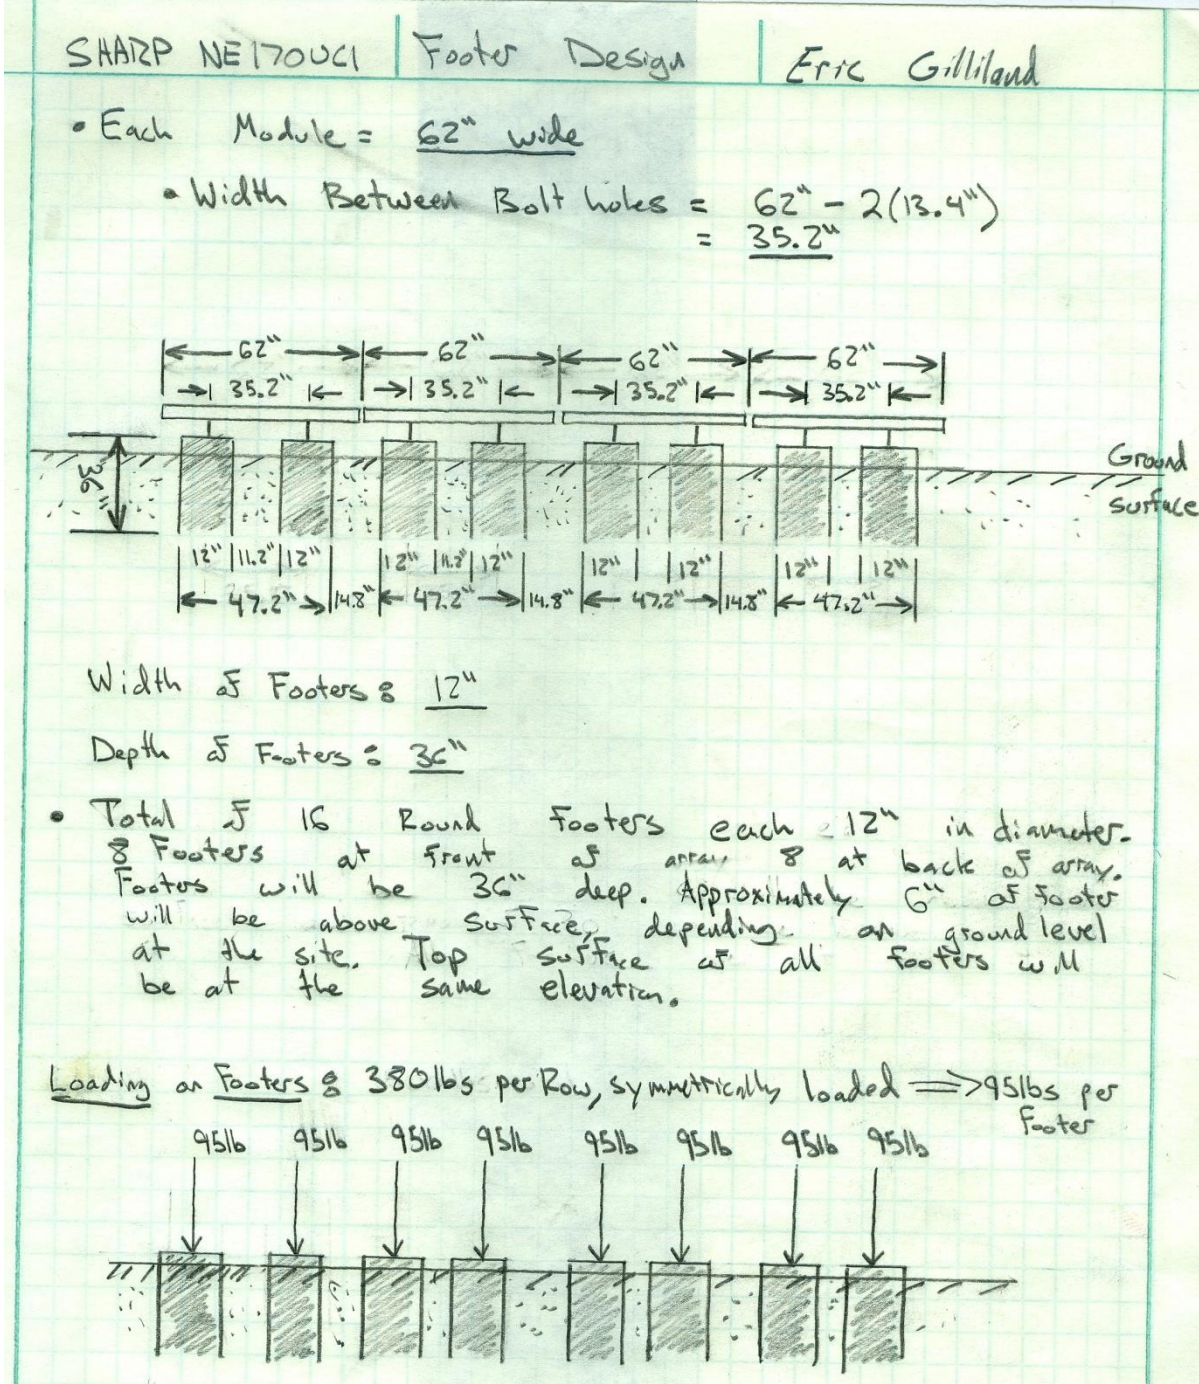 SHARP NE170UC1 Footer Design Eric Gilliland
• Each Module = 62" wide
• Width Between Bolt holes = 62" - 2(13.4")
= 35.2"
62" 62" 62" 62"
35.2" 35.2" 35.2" 35.2"
36"
Ground
surface
12" 11.2" 12" 12" 11.2" 12" 12" 12" 12" 12"
47.2" 14.8" 47.2" 14.8" 47.2" 14.8" 47.2"
Width of Footers: 12"
Depth of Footers: 36"
• Total of 16 Round footers each 12" in diameter.
8 Footers at front of array 8 at back of array.
Footers will be 36" deep. Approximately 6" of footer
will be above surface, depending on ground level
at the site. Top surface of all footers will
be at the same elevation.
Loading on Footers: 380lbs per Row, symmetrically loaded => 95lbs per
Footer
95lb 95lb 95lb 95lb 95lb 95lb 95lb 95lb